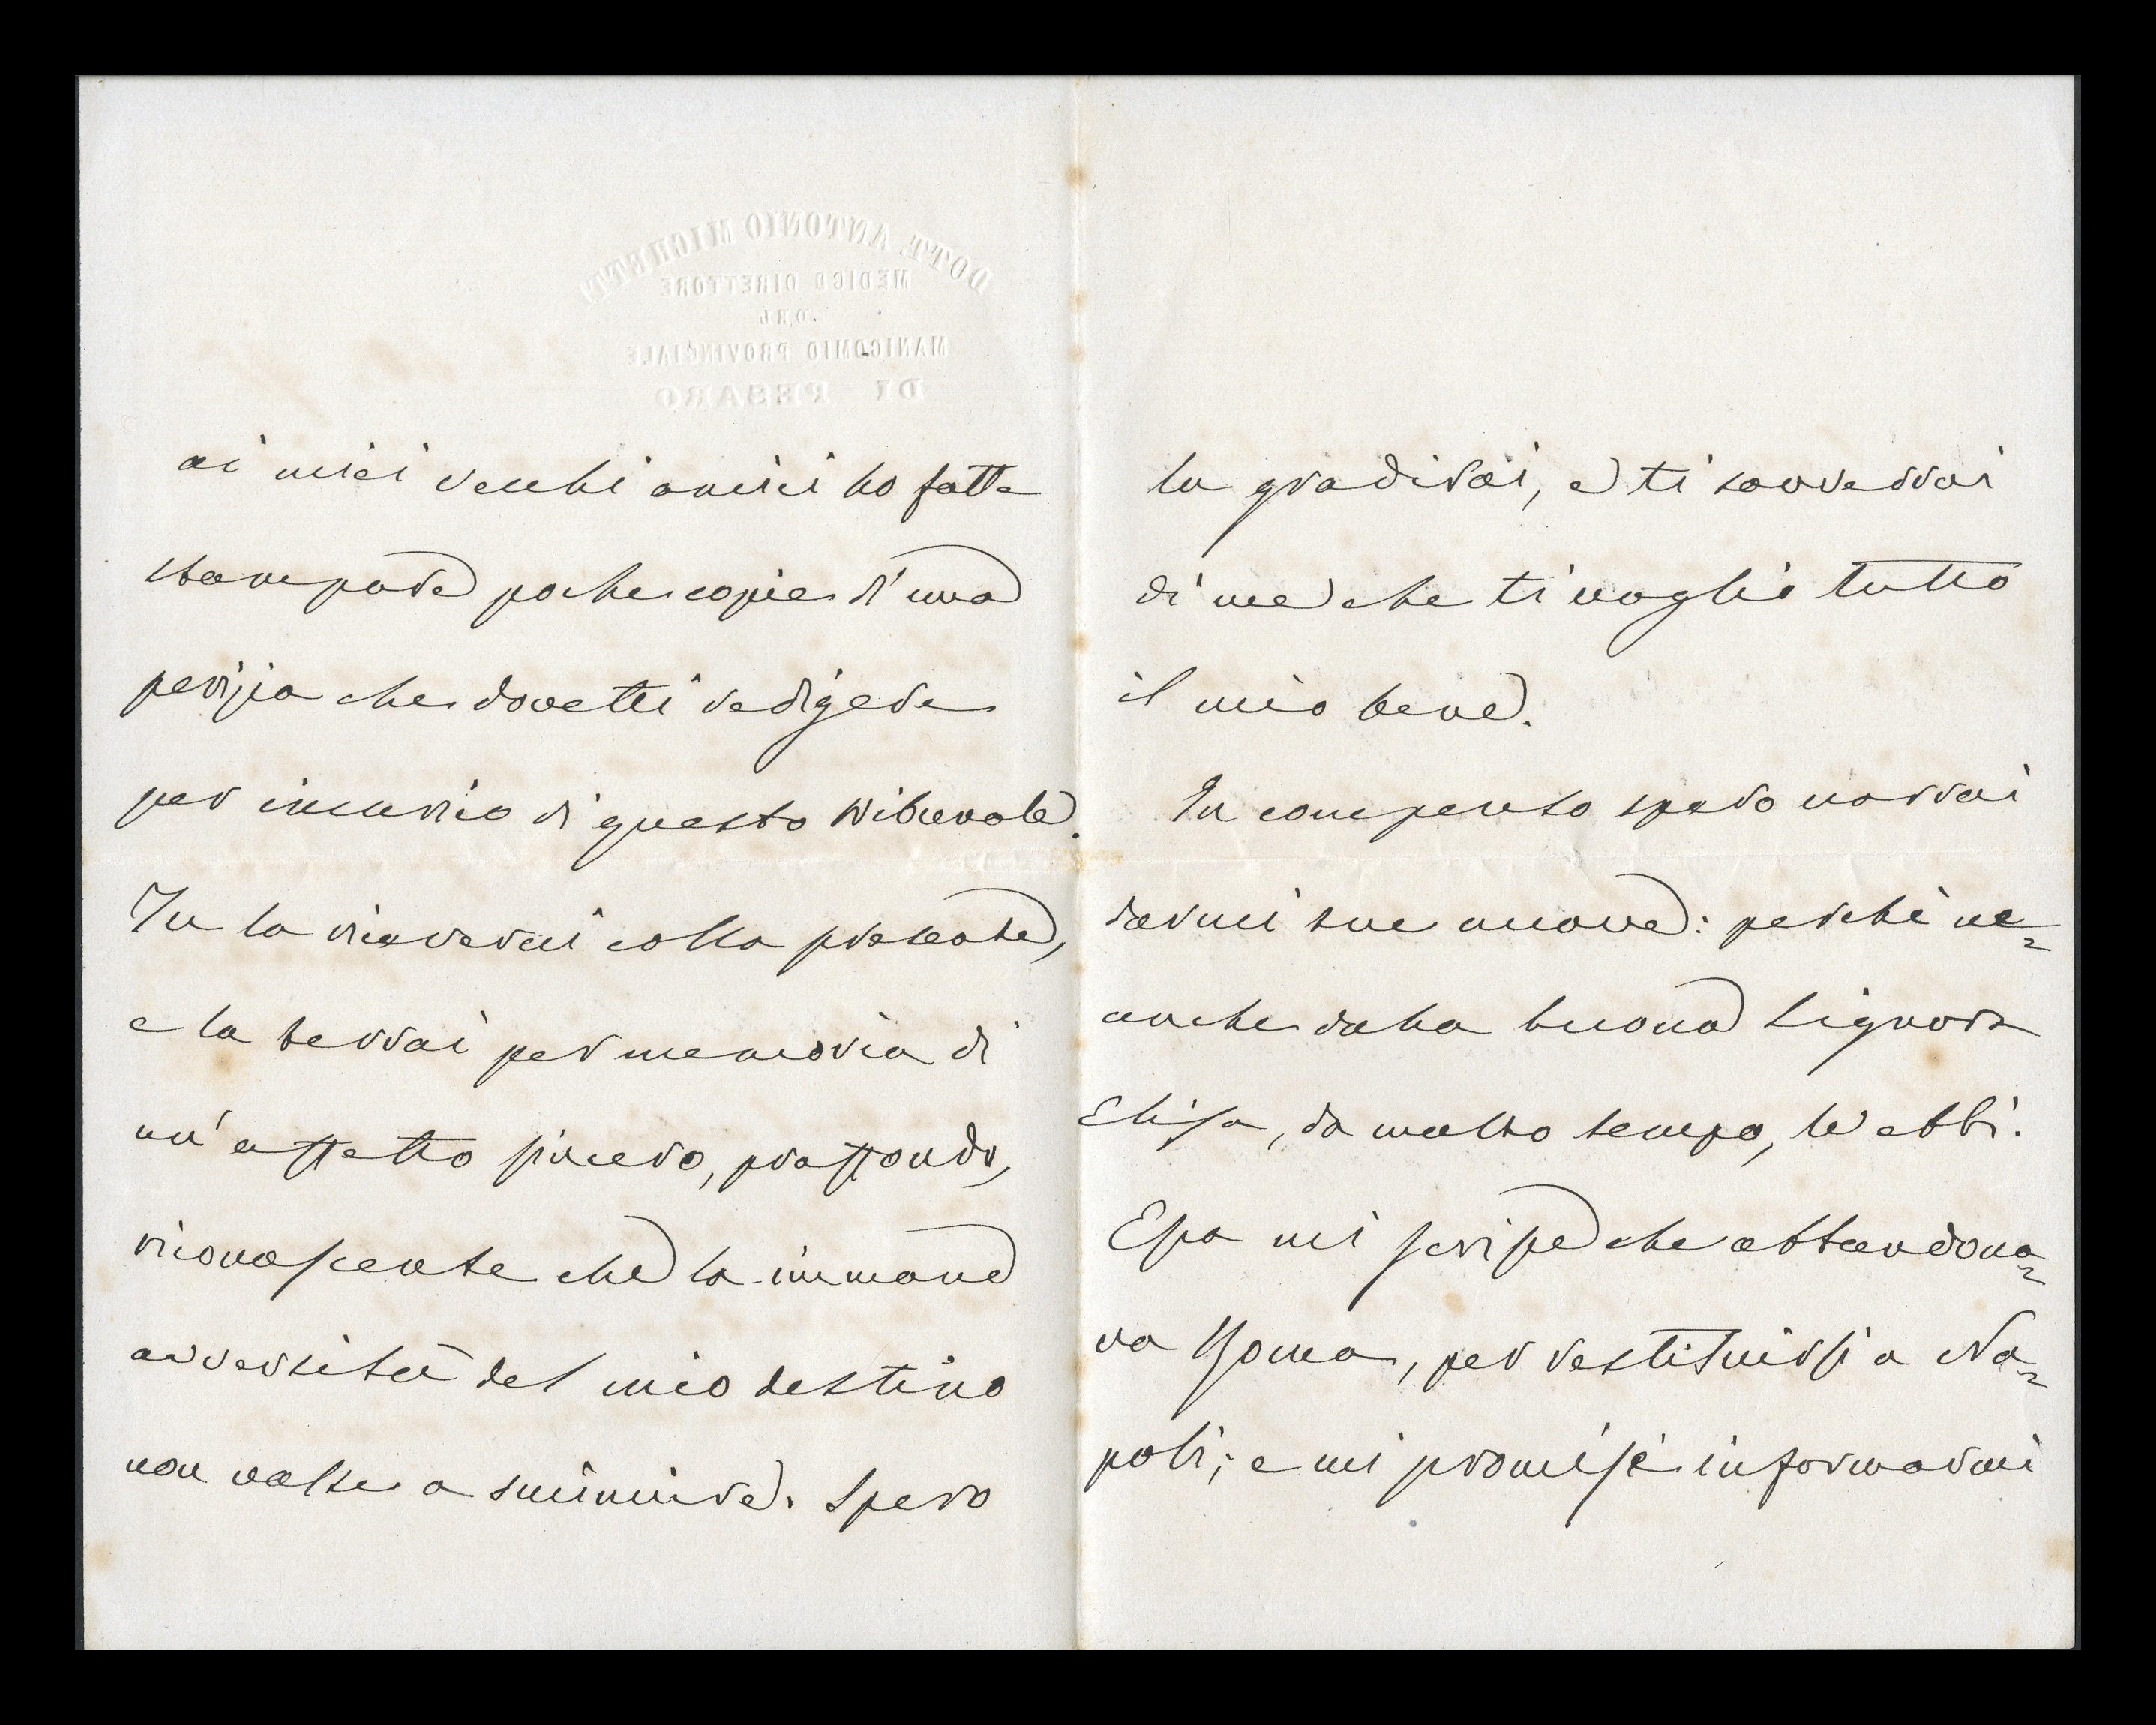 DOTT. ANTONIO MICHETTI
MEDICO DIRETTORE
DEL
MANICOMIO PROVINCIALE
DI PESARO
ai miei vecchi amici ho fatte
stampare poche copie d'una
perizia che dovetti redigere
per incarico di questo tribunale.
Tu la riceverai colla presente,
e la terrai per memoria di
un'affetto sincero, proffondo,
riconoscente che la immane
avversità del mio destino
non valse a sminuire. Spero
la gradirai, e ti sovverrai
di me che ti voglio tutto
il mio bene.
In compenso spero vorrai
darmi tue nuove: perchè ne=
anche dalla buona Signora
Elisa, da molto tempo, le ebbi.
Essa mi scrisse che abbandona=
va Roma, per restituirsi a Na=
poli; e mi promise informarmi